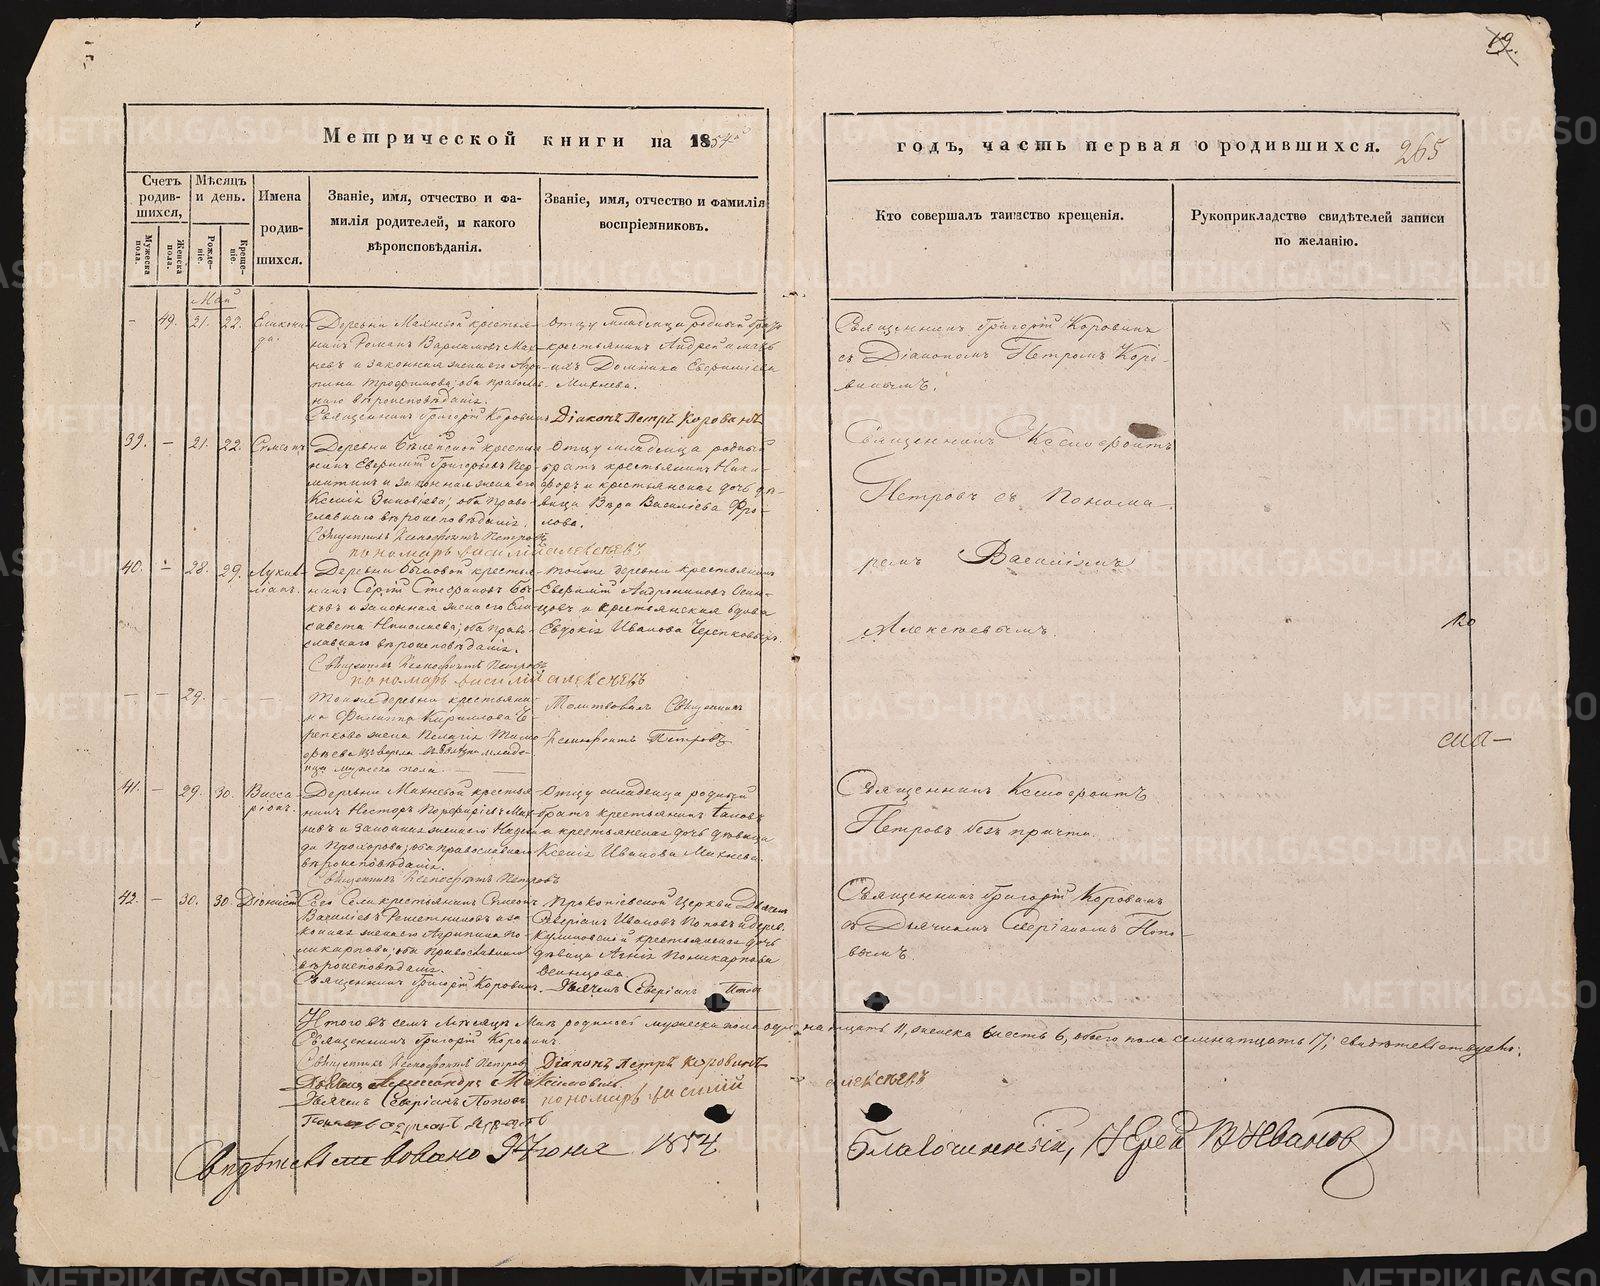 19.
Метрической книги на 1854й
годъ, часть первая о родившихся. 265
Счетъ родив- шихся,
Мужеска пола.
Женска пола.
Мѣсяцъ и день.
Рожде- ніе.
Креще- ніе.
Имена
родив-
шихся.
Званіе, имя, отчество и фа-
милія родителей, и какого
вѣроисповѣданія.
Званіе, имя, отчество и фамилія
воспріемниковъ.
Кто совершалъ таинство крещенія.
Рукоприкладство свидѣтелей записи
по желанію.
Маи
- 49. 21. 22.
Деревни крестья-
нинъ Романъ Варламовъ Мах-
невъ и законная жена его Агри-
пина Трофимова; оба православ-
наго вѣроисповѣданія.
Священникъ Григорій Коровинъ
Отцу младенца родный
крестьянинъ Андрей
Домника
Махнева.
Діаконъ Петръ Коровинъ
Священникъ Григорій Коровинъ
съ Діакономъ Петромъ Коро-
винымъ.
39. - 21. 22. Симеонъ
Деревни крестья-
нинъ Евфимій Григорьевъ
и законная жена его
Ксенія Зиновіева; оба право-
славнаго вѣроисповѣданія.
Священникъ Ксенофонтъ Петровъ
пономарь василій алексѣевъ
Отцу младенца родный
братъ крестьянинъ Ники-
форъ и крестьянская дочь дѣ-
вица Вѣра Василіева Фро-
лова.
Священникъ Ксенофонтъ
Петровъ съ Понома-
ремъ Василіемъ
Алексѣевымъ.
40. - 28. 29. Лукил-
ліанъ.
Деревни Быковой крестья-
нинъ Сергій Стефановъ Бы-
ковъ и законная жена его Ели-
савета Николаева; оба право-
славнаго вѣроисповѣданія.
Священникъ Ксенофонтъ Петровъ
пономарь василій алексѣевъ
Тойже деревни крестьянинъ
Евфимій Андрониковъ Осин-
цовъ и крестьянская вдова
Евдокія Иванова Черепкова.
- - 29. - -
Тойже деревни крестьяни-
на Филиппа Кириллова Че-
репкова жена Пелагія Тимо-
фѣева
мужеска пола.
Молитвовалъ Священникъ
Ксенофонтъ Петровъ
41. - 29. 30. Висса-
ріонъ.
Деревни Махневой крестья-
нинъ Несторъ Порфиріевъ Мах-
невъ и законная жена его Надеж-
да Прохорова; оба православнаго
вѣроисповѣданія.
Священникъ Ксенофонтъ Петровъ
Отцу младенца родный
братъ крестьянинъ
и крестьянская дочь дѣвица
Ксенія Иванова Махнева.
Священникъ Ксенофонтъ
Петровъ безъ причта.
42. - 30. 30. Діонисій
Сего Села крестьянинъ Симеонъ
Василіевъ Решетниковъ и за-
конная жена его Агрипина По-
ликарпова; оба Православнаго
вѣроисповѣданія.
Священникъ Григорій Коровинъ.
Прокопіевской Церкви Дьячекъ
Северіанъ Ивановъ Поповъ и дерев.
крестьянская дочь
дѣвица Агнія Поликарпова
Осинцова.
Дьячекъ Северіанъ Попов
Священникъ Григорій Коровинъ
съ Дьячкомъ Северіаномъ Попо-
вымъ.
Итого въ семъ Мѣсяцѣ Маѣ родилось мужеска пола одиннатцать 11, женска шесть 6, обоего пола семнатцать 17; свидѣтельствуемъ:
Священникъ Григорій Коровинъ.
Священникъ Ксенофонтъ Петров
Діаконъ Петръ Коровинъ
Дьячекъ Северіанъ Поповъ
пономарь василій алексѣевъ
Свидѣтельствовано 9 Июня 1854
Благочинный, Иерей В Ивановъ